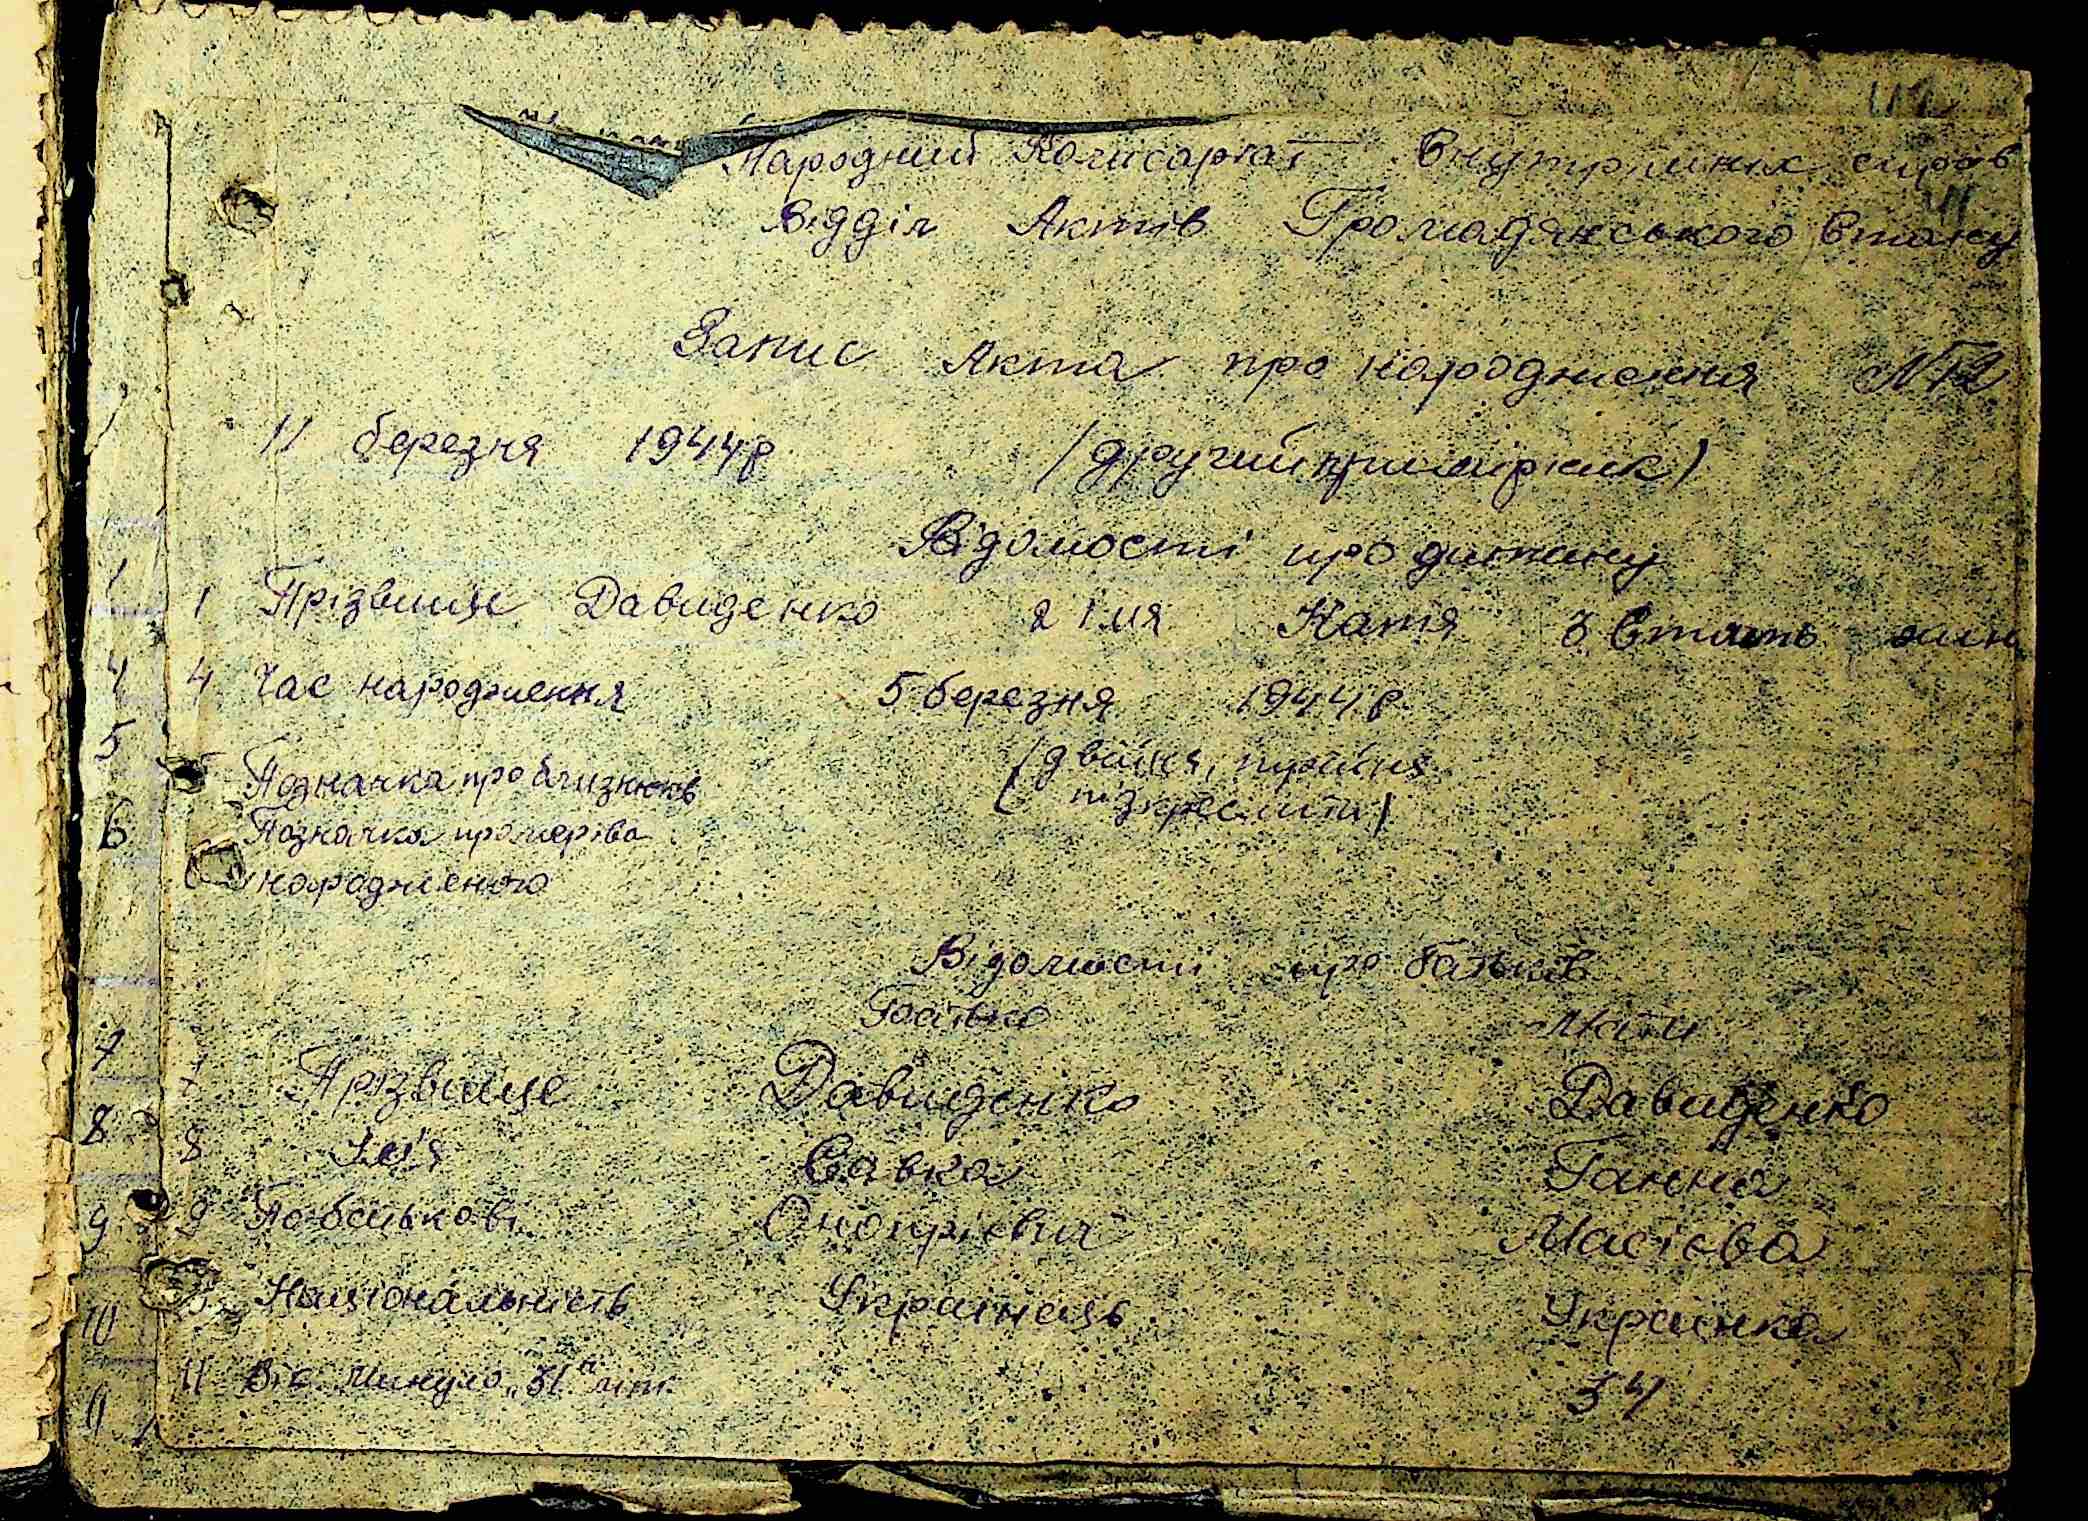 Народний Комисаріат Внутрішніх справ
Відділ Актів Громадянського Стану
Запис Акта про народження №12
11 березня 1944р (другий примірник)
Відомості про дитину
1 Прізвище Давиденко 2 імя Катя 3 Стать жін
4 Час народження 5 березня 1944р.
Позначка про близнюків (двійня, трійня
підкреслити)
Позначка про мертво
народженого
Відомости про батьків
Батько Мати
7 Прізвище Давиденко Давиденко
8 Ім'я Савка Ганна
9 По батькові Онопрієвич
Національність Українець Українка
11 Вік Минуло "31" літ. 34
1
4
5
6
7
8
9
10